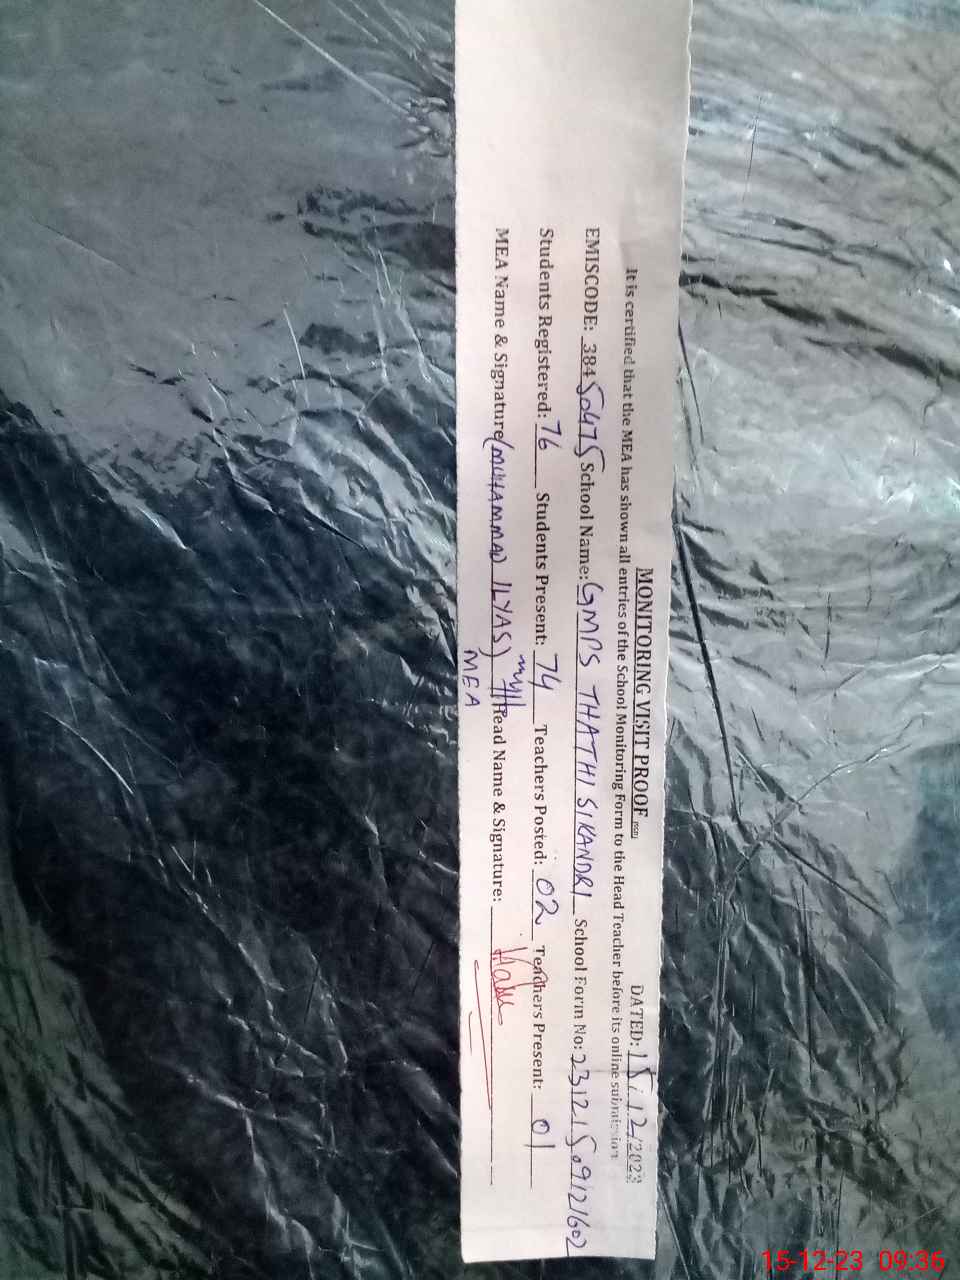 MONITORING VISIT PROOF
DATED: 15/12/2023
It is certified that the MEA has shown all entries of the School Monitoring Form to the Head Teacher before its online submission
EMISCODE: 38450475 School Name: GMPS THATHI SIKANDRI School Form No: 23121509121602
Students Registered: 76 Students Present: 74 Teachers Posted: 02 Teachers Present: 01
MEA Name & Signature (MUHAMMAD ILYAS) Head Name & Signature:
MEA
15-12-23 09:36